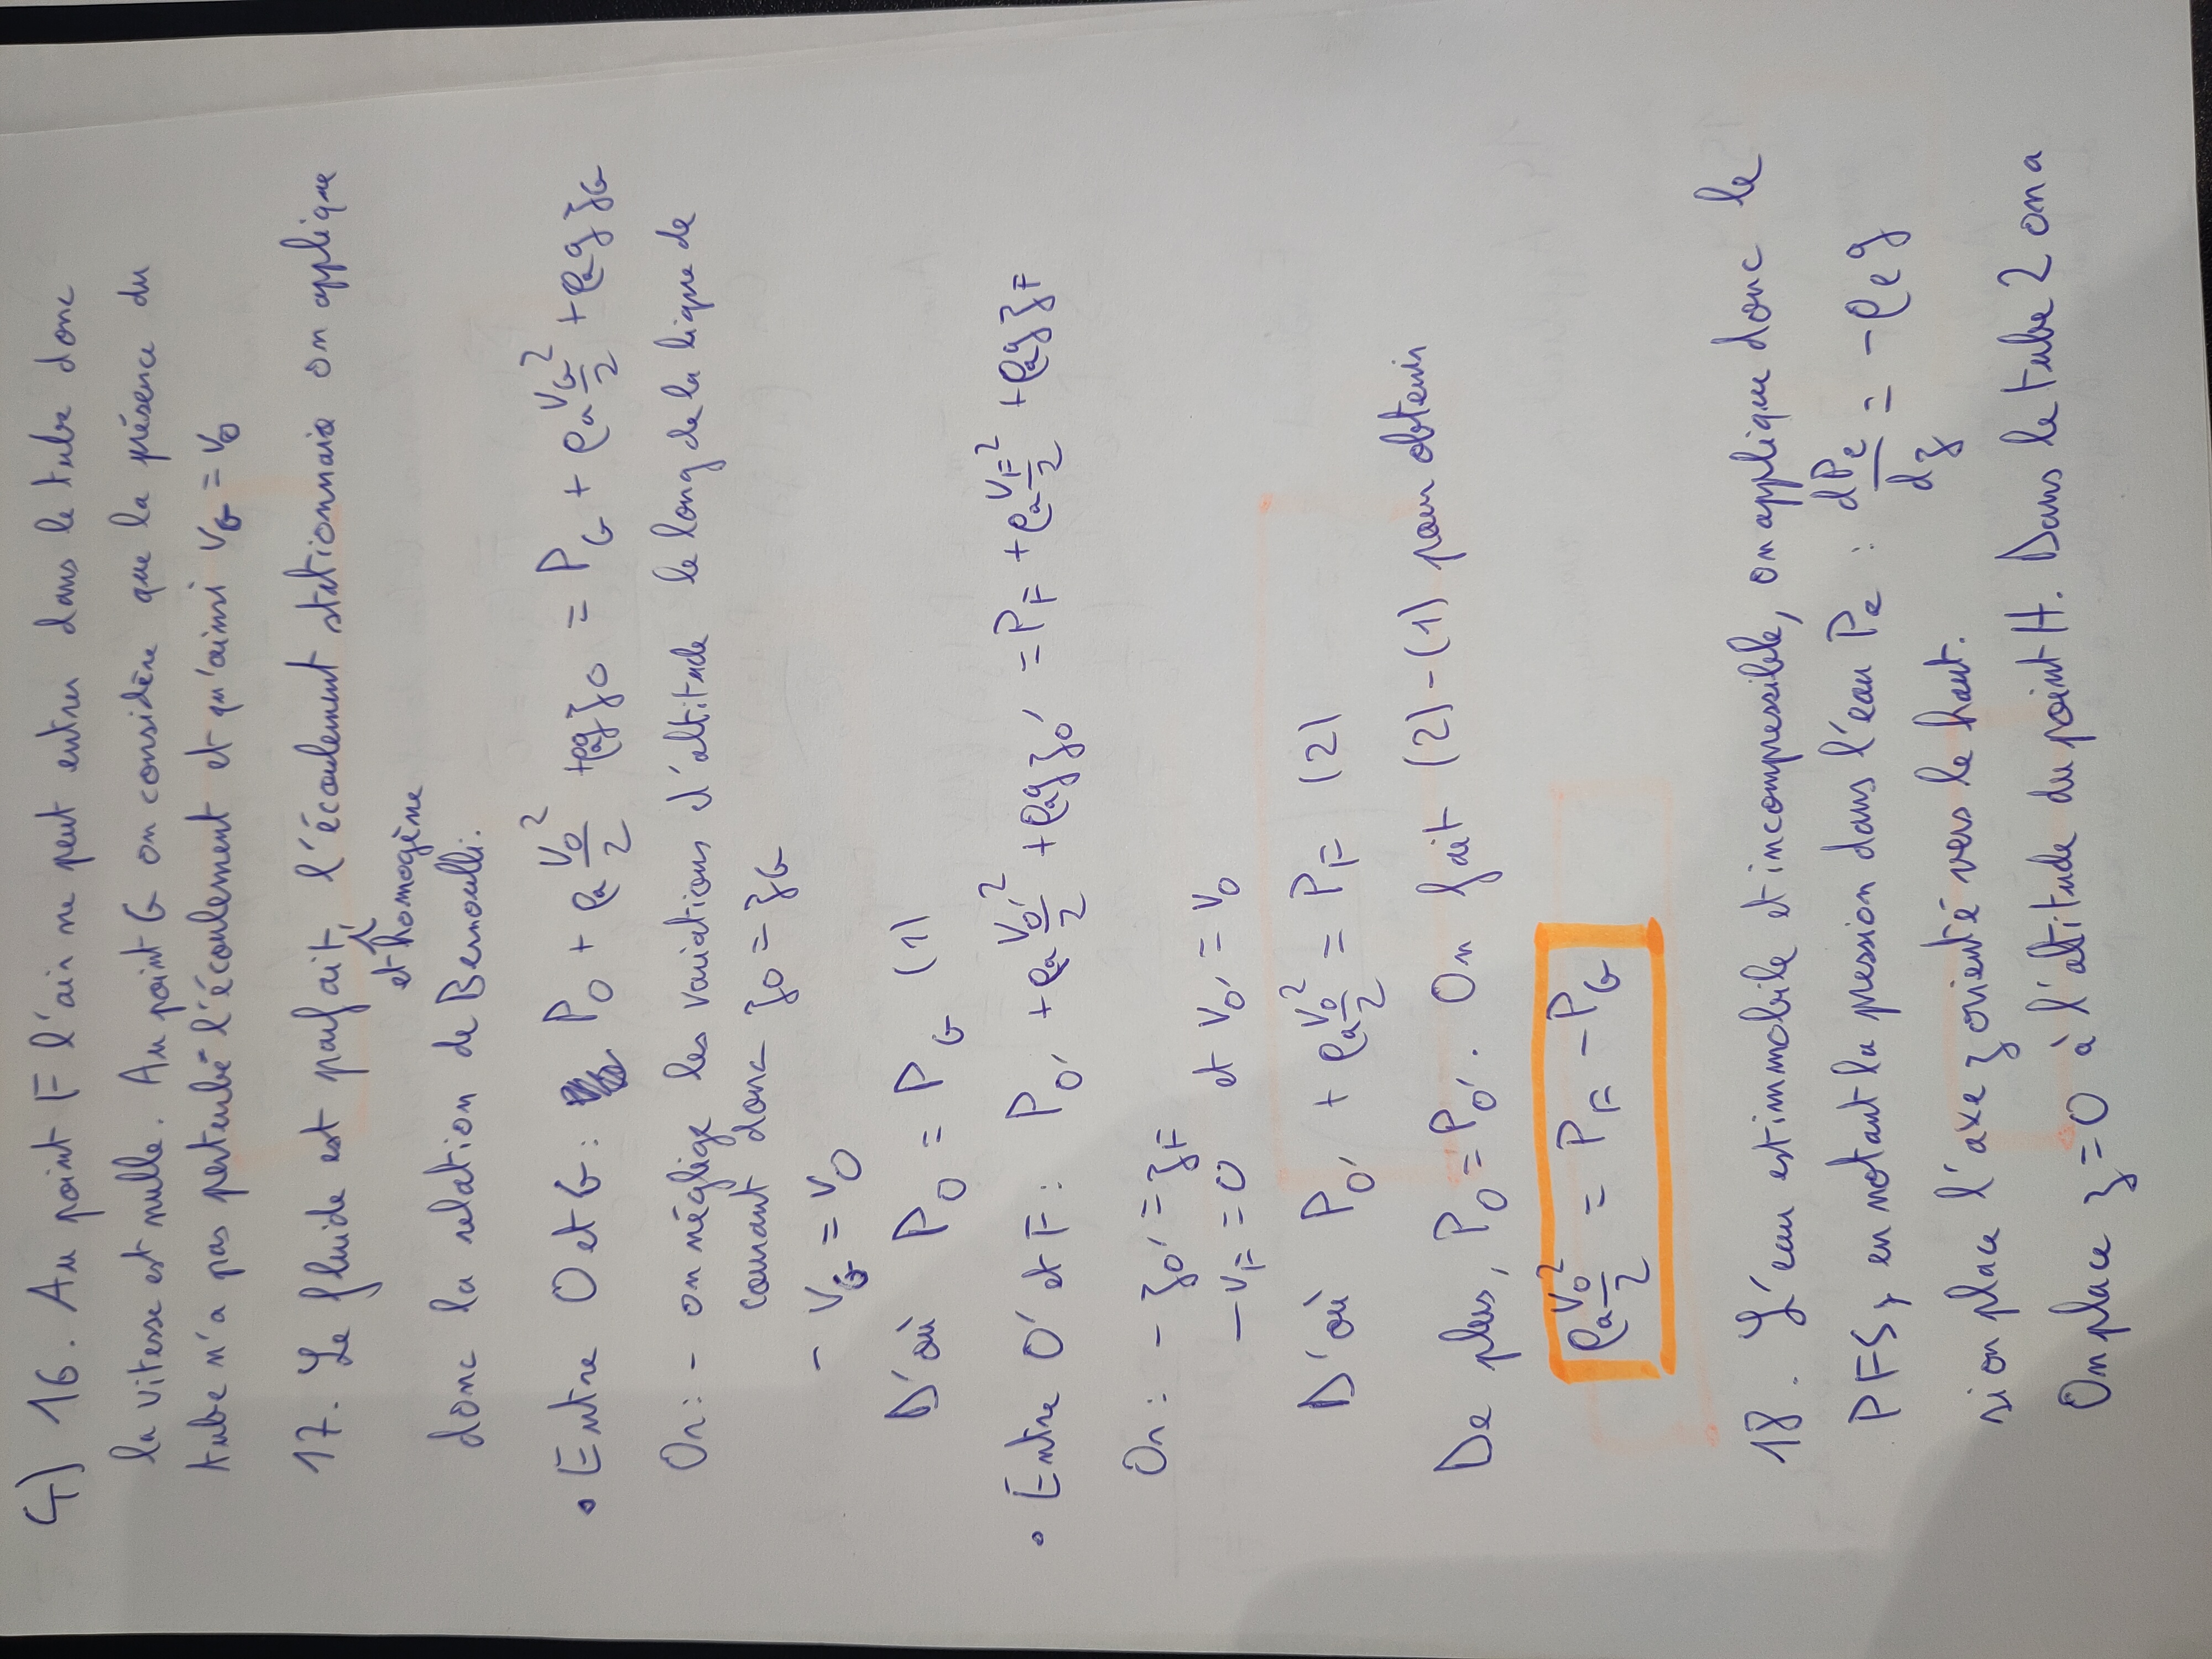 G) 16. Au point F l'air ne peut entrer dans le tube donc
la vitesse est nulle. Au point G on considère que la présence du
tube n'a pas perturbé l'écoulement et qu'ainsi v_G = v_0
17. Le fluide est parfait, l'écoulement stationnaire on applique
et homogène
donc la relation de Bernoulli.
• Entre O et G : P_O + ρ_a v_O²/2 + ρ_a g z_O = P_G + ρ_a v_G²/2 + ρ_a g z_G
Or : - on néglige les variations d'altitude le long de la ligne de
courant donc z_O = z_G
- v_G = v_O
D'où P_O = P_G (1)
• Entre O' et F : P_O' + ρ_a v_O'²/2 + ρ_a g z_O' = P_F + ρ_a v_F²/2 + ρ_a g z_F
Or : - z_O' = z_F
- v_F = 0 et v_O' = v_0
D'où P_O' + ρ_a v_0²/2 = P_F (2)
De plus, P_O = P_O'. On fait (2) - (1) pour obtenir
ρ_a v_0²/2 = P_F - P_G
18. L'eau est immobile et incompressible, on applique donc le
PFS, en notant la pression dans l'eau P_e : dP_e/dz = - ρ_e g
si on place l'axe z orienté vers le haut.
On place z = 0 à l'altitude du point H. Dans le tube 2 on a